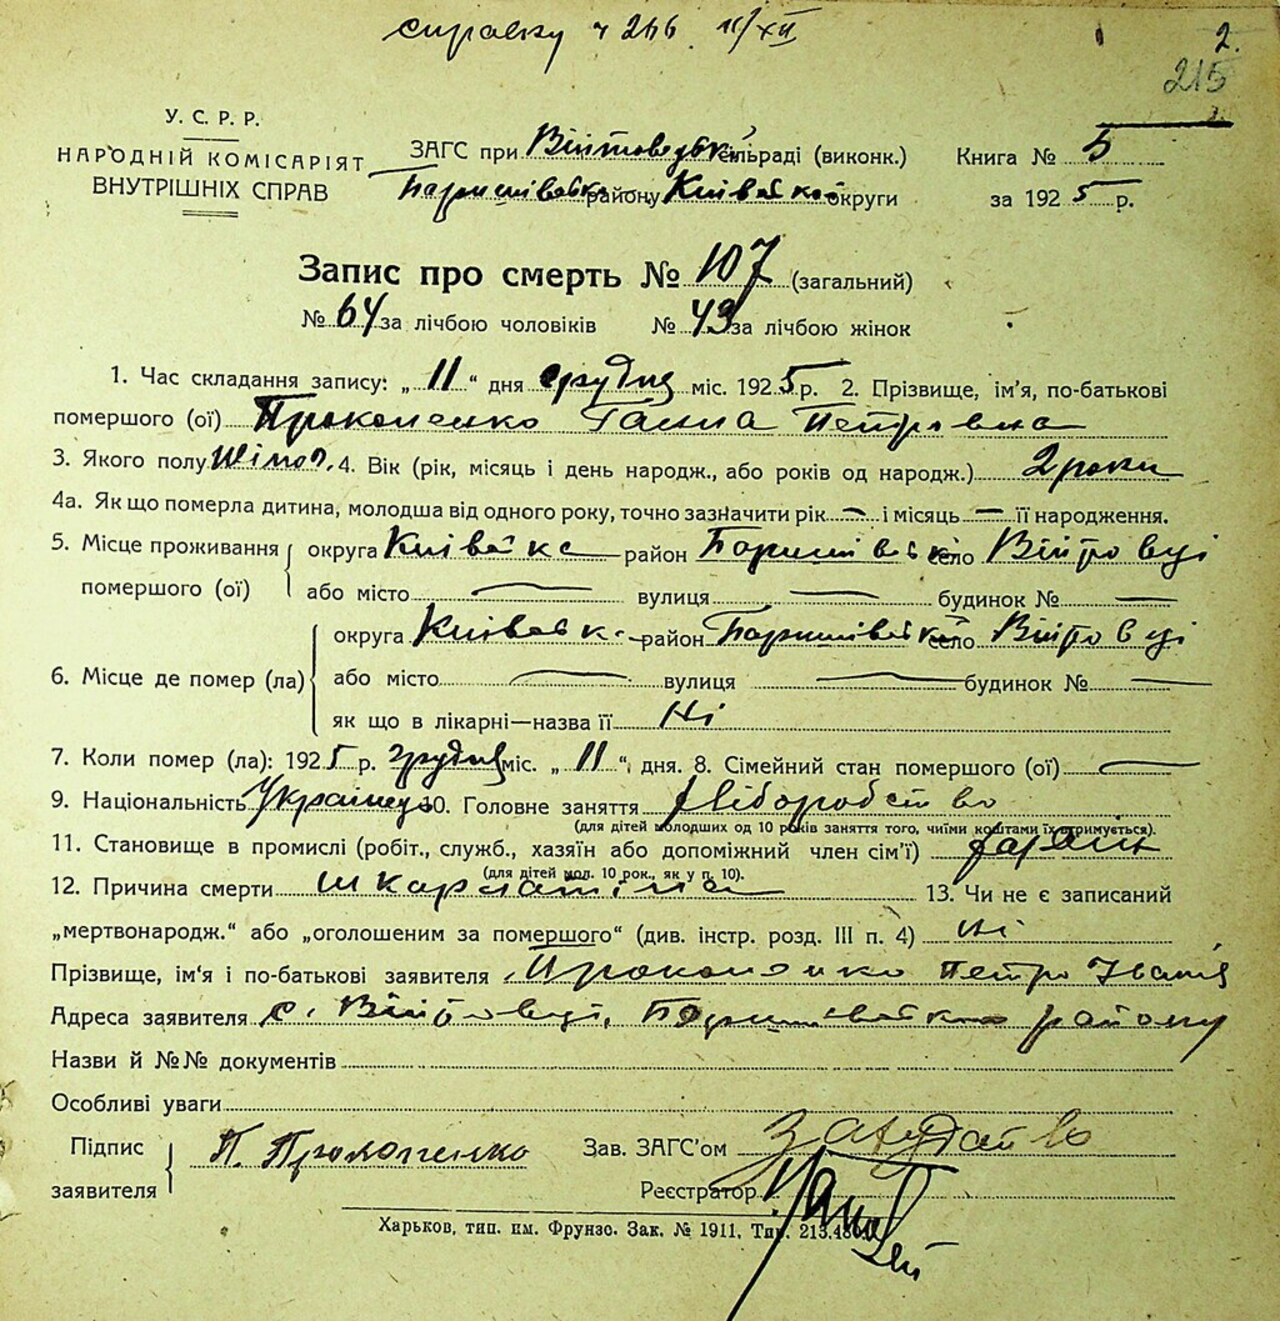 справку ч 266 11/XII
2.
215
У. С. Р. Р.
НАРОДНІЙ КОМІСАРІЯТ
ВНУТРІШНІХ СПРАВ
ЗАГС при Війтовецькій сільраді (виконк.)
Баришівськ району Київської округи
Книга № 5
за 1925 р.
Запис про смерть № 107 (загальний)
№ 64 за лічбою чоловіків № 43 за лічбою жінок
1. Час складання запису: „11“ дня грудня міс. 1925 р. 2. Прізвище, ім'я, по-батькові
помершого (ої) Прокопенко Ганна Петровна
3. Якого полу жіноч. 4. Вік (рік, місяць і день народж., або років од народж.) 2 роки
4а. Як що померла дитина, молодша від одного року, точно зазначити рік — і місяць — її народження.
5. Місце проживання помершого (ої) округа Київськ район Баришівськ село Війтовці
або місто — вулиця — будинок № —
6. Місце де помер (ла) округа Київськ. район Баришівськ село Війтовці
або місто — вулиця — будинок № —
як що в лікарні—назва її Ні
7. Коли помер (ла): 1925 р. грудня міс. „11“ дня. 8. Сімейний стан помершого (ої) —
9. Національність Українець 10. Головне заняття хліборобство
(для дітей молодших од 10 років заняття того, чиїми коштами їх отримується).
11. Становище в промислі (робіт., служб., хазяїн або допоміжний член сім'ї) хазяїн
(для дітей мол. 10 рок., як у п. 10).
12. Причина смерти шкарлатіна 13. Чи не є записаний
„мертвонародж.“ або „оголошеним за помершого“ (див. інстр. розд. III п. 4) ні
Прізвище, ім'я і по-батькові заявителя Прокопенко Петро Іванів
Адреса заявителя с. Війтовці, Баришівського району
Назви й №№ документів
Особливі уваги
Підпис заявителя П. Прокопенко
Зав. ЗАГС'ом
Реєстратор
Харьков, тип. им. Фрунзе. Зак. № 1911, Тир. 213.480